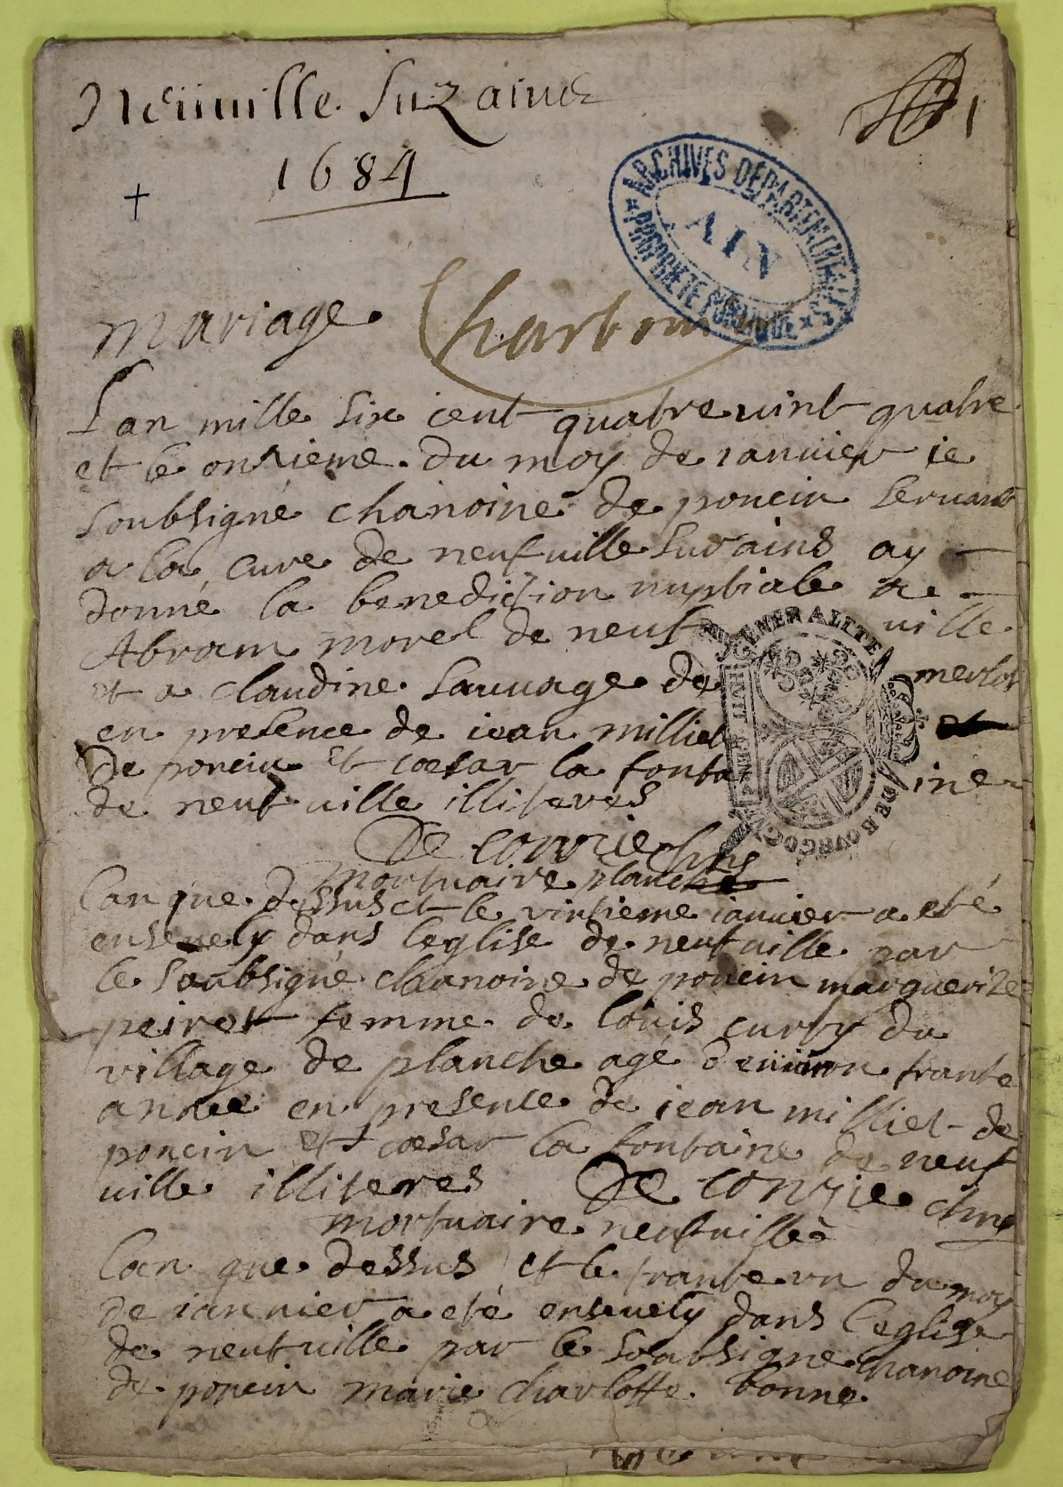 Neiiuille Suz ains 1
1684
ARCHIVES DÉPARTEMENTALES
AIN
PROPRIÉTÉ PUBLIQUE
mariage Charbon
Lan mille six cent quatre uint quatre
et le onzieme du moy de ianuier ie
soubsigné chanoine de poncin seruant
a la cure de neufuille sur ains ay
donné la benediction nuptiale a
Abram morel de neuf uille
et a claudine sauuage de merlos
en presence de iean milliet
de poncin Et cœsar la fonta ine
de neuf uille illiteres
De conzie chne
mortuaire planche
Lan que dessus et le vintieme ianuier a eté
enseuely dans leglise de neufuille par
le soubsigné chanoine de poncin marguerite
peiret femme de louis curty du
village de planche agé denuiron trante
année en presence de iean milliet de
poncin et cœsar la fontaine de neuf
uille illiteres De conzie chne
mortuaire neufuille
Lan que dessus et le trante vn du moy
de ianuier a eté enseuely dans leglise
de neufuille par le soubsigne chanoine
de poncin marie charlotte bonne
GENERALITE
DE BOURGOGNE